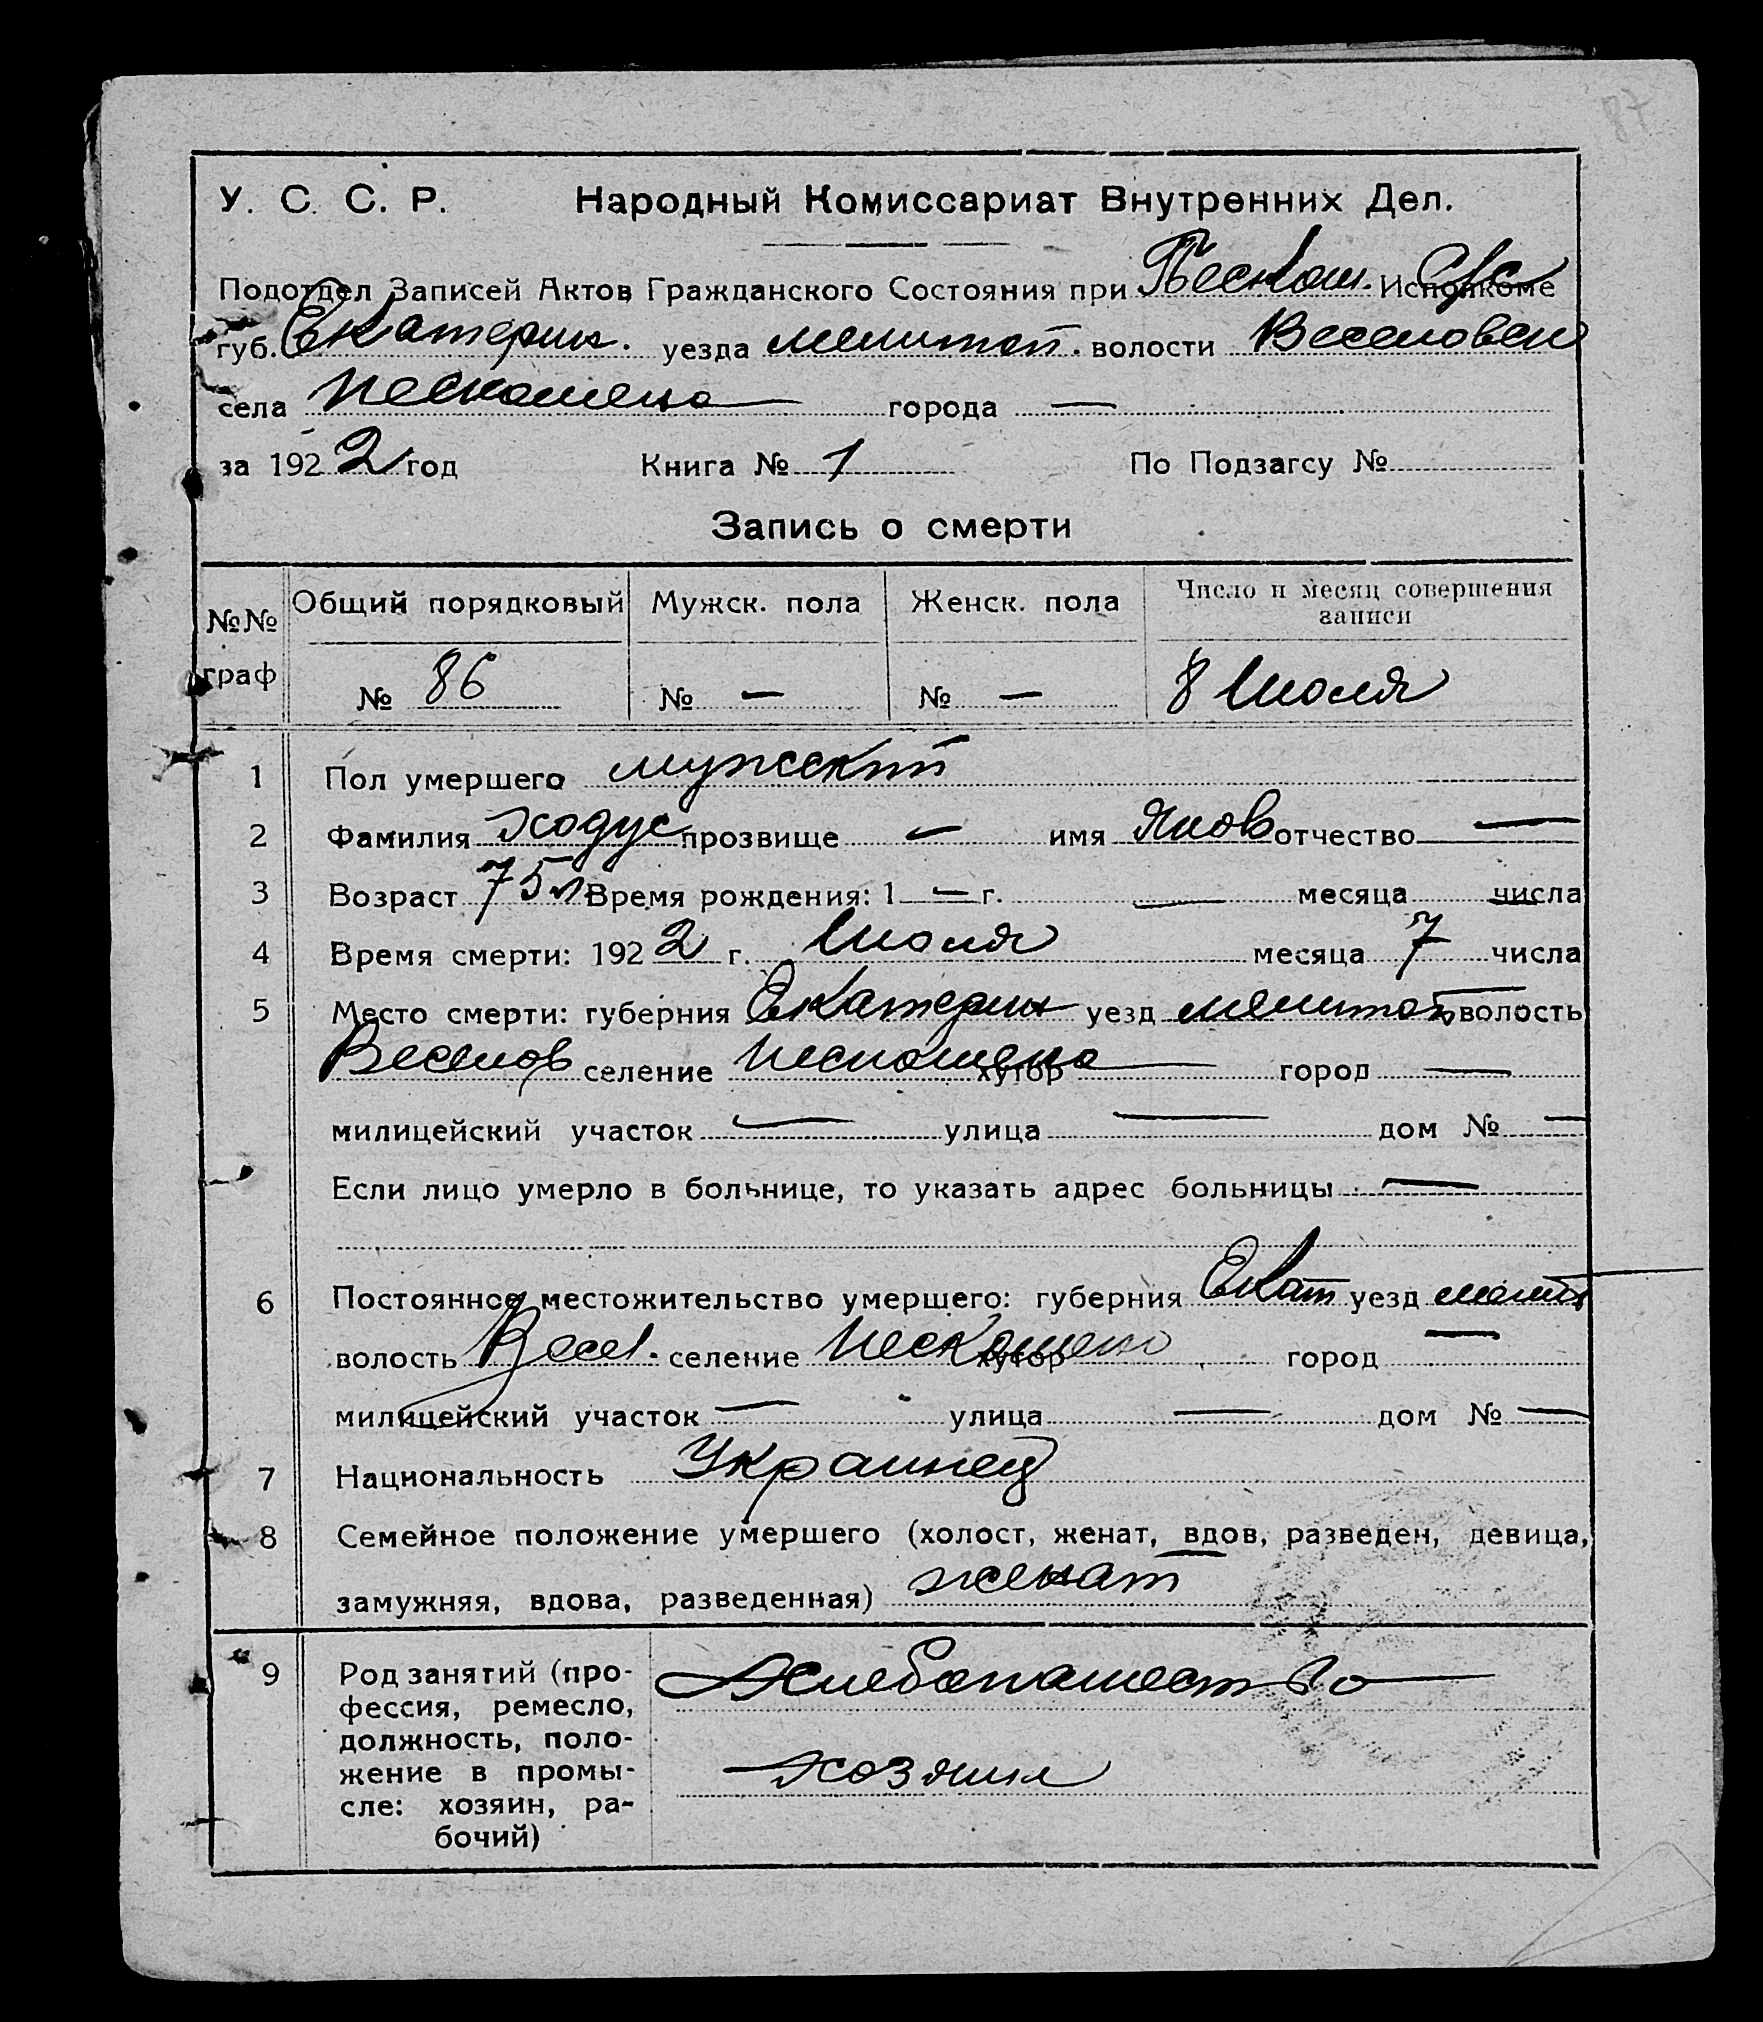 87
У. С. С. Р. Народный Комиссариат Внутренних Дел.
Подотдел Записей Актов Гражданского Состояния при Пескош. Исполкоме
губ. Екатерин. уезда мелитоп. волости Веселовск
села Пескошено города —
за 1922 год Книга № 1 По Подзагсу №
Запись о смерти
№№ граф Общий порядковый Мужск. пола Женск. пола Число и месяц совершения записи
№ 86 № — № — 8 Июля
1 Пол умершего мужской
2 Фамилия Ходус прозвище — имя Яков отчество —
3 Возраст 75 л Время рождения: 1 — г. — месяца — числа
4 Время смерти: 1922 г. Июля месяца 7 числа
5 Место смерти: губерния Екатерин уезд мелитоп волость
Веселов селение Пескошено хутор город —
милицейский участок — улица — дом № —
Если лицо умерло в больнице, то указать адрес больницы —
6 Постоянное местожительство умершего: губерния Екат уезд мелит
волость Весел. селение Пескошено хутор город —
милицейский участок — улица — дом № —
7 Национальность Украинец
8 Семейное положение умершего (холост, женат, вдов, разведен, девица,
замужняя, вдова, разведенная) женат
9 Род занятий (про-
фессия, ремесло,
должность, поло-
жение в промы-
сле: хозяин, ра-
бочий)
Хлебопашество
хозяин